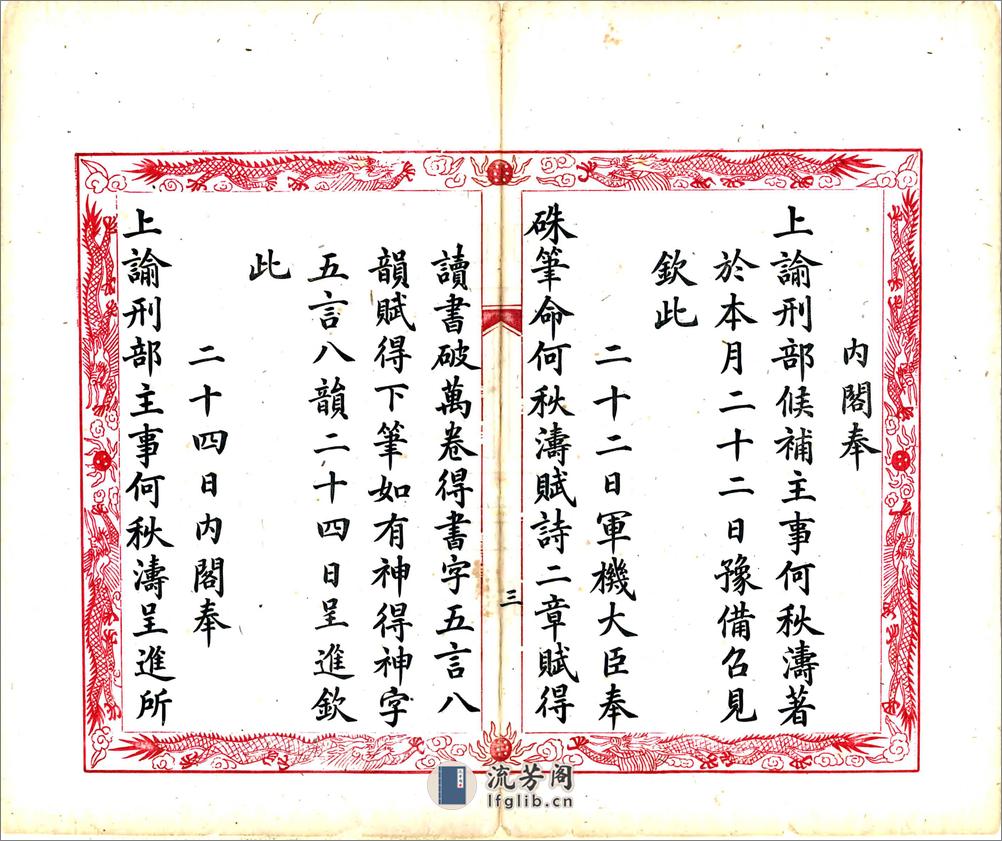 内閣奉
上諭刑部候補主事何秋濤著
於本月二十二日豫備召見
欽此
二十二日軍機大臣奉
硃筆命何秋濤賦詩二章賦得
三
讀書破萬卷得書字五言八
韻賦得下筆如有神得神字
五言八韻二十四日呈進欽
此
二十四日内閣奉
上諭刑部主事何秋濤呈進所
流芳阁
lfglib.cn